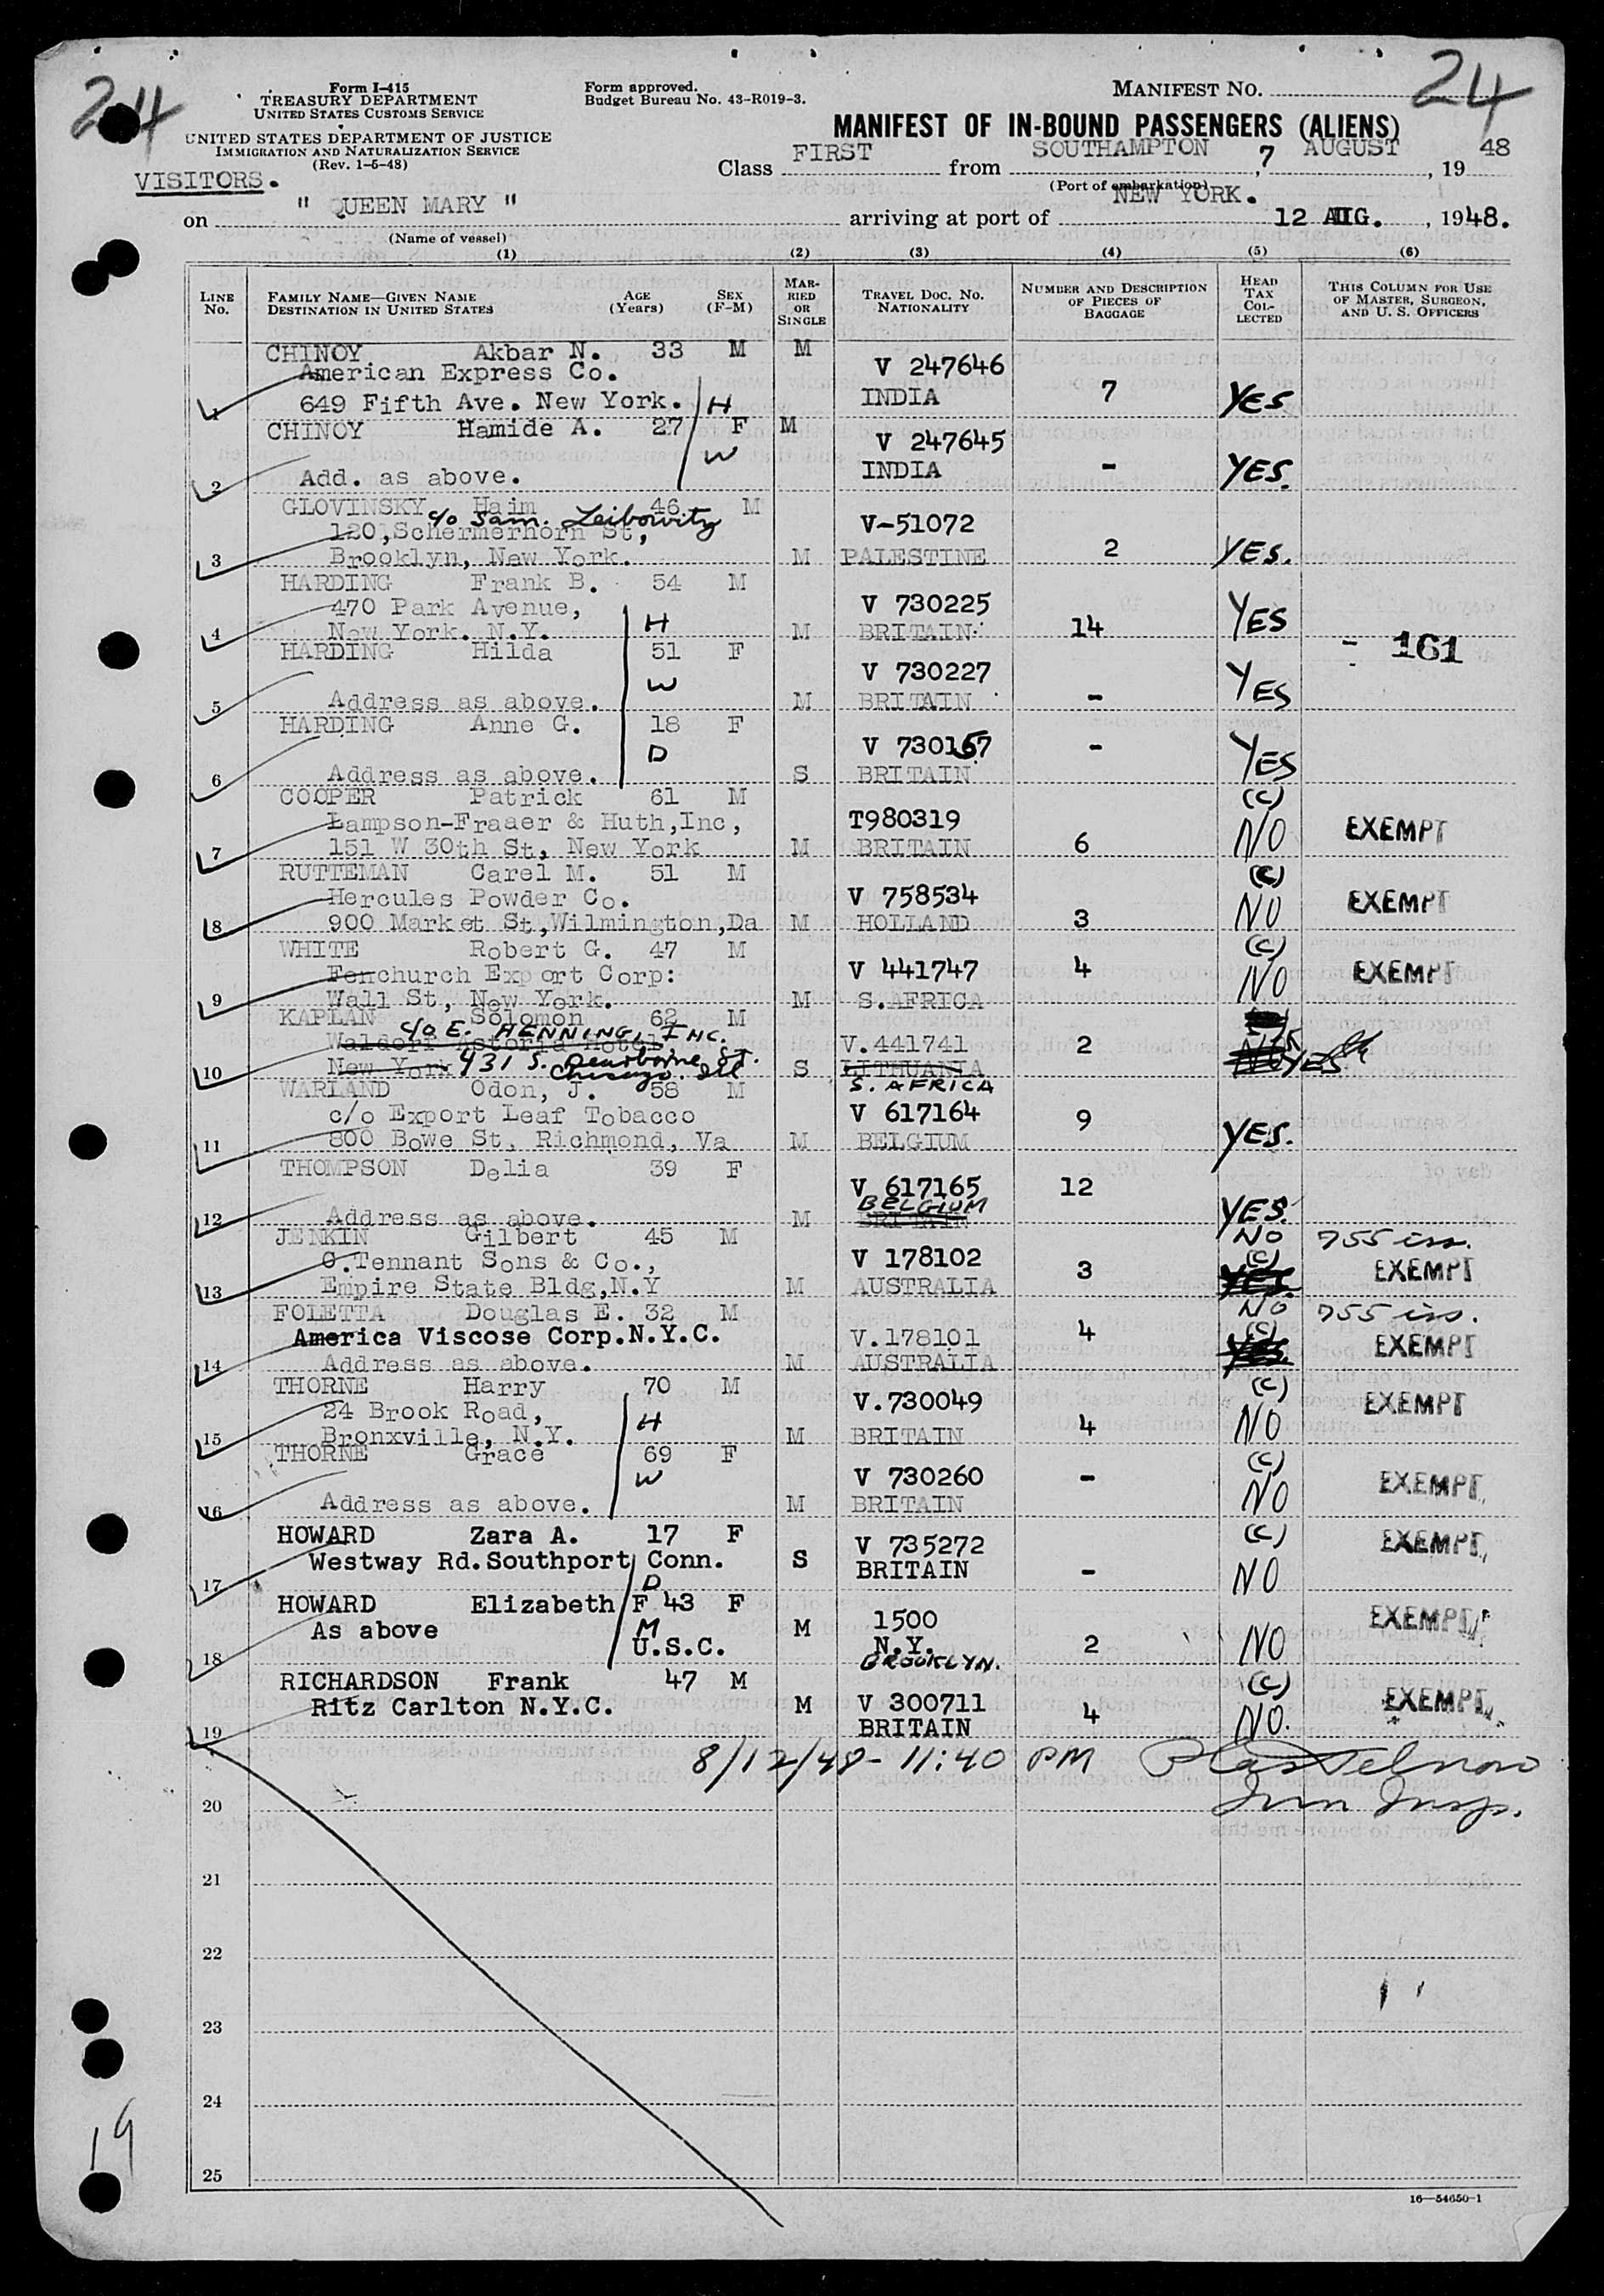 24
24
Form I-415
TREASURY DEPARTMENT
UNITED STATES CUSTOMS SERVICE
UNITED STATES DEPARTMENT OF JUSTICE
IMMIGRATION AND NATURALIZATION SERVICE
(Rev. 1-5-48)
Form approved.
Budget Bureau No. 43-R019-3.
MANIFEST NO.
MANIFEST OF IN-BOUND PASSENGERS (ALIENS)
VISITORS.
Class FIRST from SOUTHAMPTON, 7 AUGUST, 19 48
(Port of embarkation)
on " QUEEN MARY " arriving at port of NEW YORK. 12 AUG., 1948.
(Name of vessel)
(1) (2) (3) (4) (5) (6)
LINE No. FAMILY NAME—GIVEN NAME DESTINATION IN UNITED STATES AGE (Years) SEX (F-M) MARRIED OR SINGLE TRAVEL DOC. NO. NATIONALITY NUMBER AND DESCRIPTION OF PIECES OF BAGGAGE HEAD TAX COLLECTED THIS COLUMN FOR USE OF MASTER, SURGEON, AND U. S. OFFICERS
CHINOY Akbar N. 33 M M
American Express Co. V 247646
1 649 Fifth Ave. New York. H INDIA 7 YES
CHINOY Hamide A. 27 F M
W V 247645
2 Add. as above. INDIA - YES.
GLOVINSKY Haim 46 M
c/o Sam. Leibowitz
120, Schermerhorn St, V-51072
3 Brooklyn, New York. M PALESTINE 2 YES.
HARDING Frank B. 54 M
470 Park Avenue, V 730225
4 New York. N.Y. H M BRITAIN 14 YES
- 161
HARDING Hilda 51 F
W V 730227
5 Address as above. M BRITAIN - YES
HARDING Anne G. 18 F
D V 730157 -
6 Address as above. S BRITAIN YES
COOPER Patrick 61 M (C)
Lampson-Fraaer & Huth,Inc, T980319 EXEMPT
7 151 W 30th St, New York M BRITAIN 6 NO
RUTTEMAN Carel M. 51 M (C)
Hercules Powder Co. V 758534 EXEMPT
8 900 Market St,Wilmington,Da M HOLLAND 3 NO
WHITE Robert G. 47 M (C)
Fenchurch Export Corp: V 441747 4 EXEMPT
9 Wall St, New York. M S.AFRICA NO
KAPLAN Solomon 62 M
c/o E. HENNING, INC.
Waldorf Astoria Hotel V.441741 2
10 New York 431 S. Dearborne St. S LITHUANIA YES
Chicago. Ill
S. AFRICA
WARLAND Odon, J. 58 M
c/o Export Leaf Tobacco V 617164 9
11 800 Bowe St, Richmond, Va M BELGIUM YES.
THOMPSON Delia 39 F
V 617165 12
BELGIUM
12 Address as above. M BRITAIN YES.
JENKIN Gilbert 45 M NO 755 iss.
C.Tennant Sons & Co., V 178102 (C) EXEMPT
13 Empire State Bldg,N.Y M AUSTRALIA 3 YES.
FOLETTA Douglas E. 32 M NO 755 iss.
America Viscose Corp.N.Y.C. V.178101 4 (C) EXEMPT
14 Address as above. M AUSTRALIA YES.
THORNE Harry 70 M (C)
24 Brook Road, V.730049 EXEMPT
15 Bronxville, N.Y. H M BRITAIN 4 NO
THORNE Grace 69 F (C)
W V 730260 - EXEMPT
16 Address as above. M BRITAIN NO
HOWARD Zara A. 17 F (C)
Westway Rd.Southport Conn. S V 735272 EXEMPT
17 D BRITAIN - NO
HOWARD Elizabeth F 43 F
As above M M 1500 EXEMPT
18 U.S.C. N.Y. 2 NO
BROOKLYN.
RICHARDSON Frank 47 M (C)
Ritz Carlton N.Y.C. M V 300711 4 EXEMPT
19 BRITAIN NO.
8/12/48 - 11:40 PM
Imm Insp.
20
21
22
23
24
25
19
16—54650-1